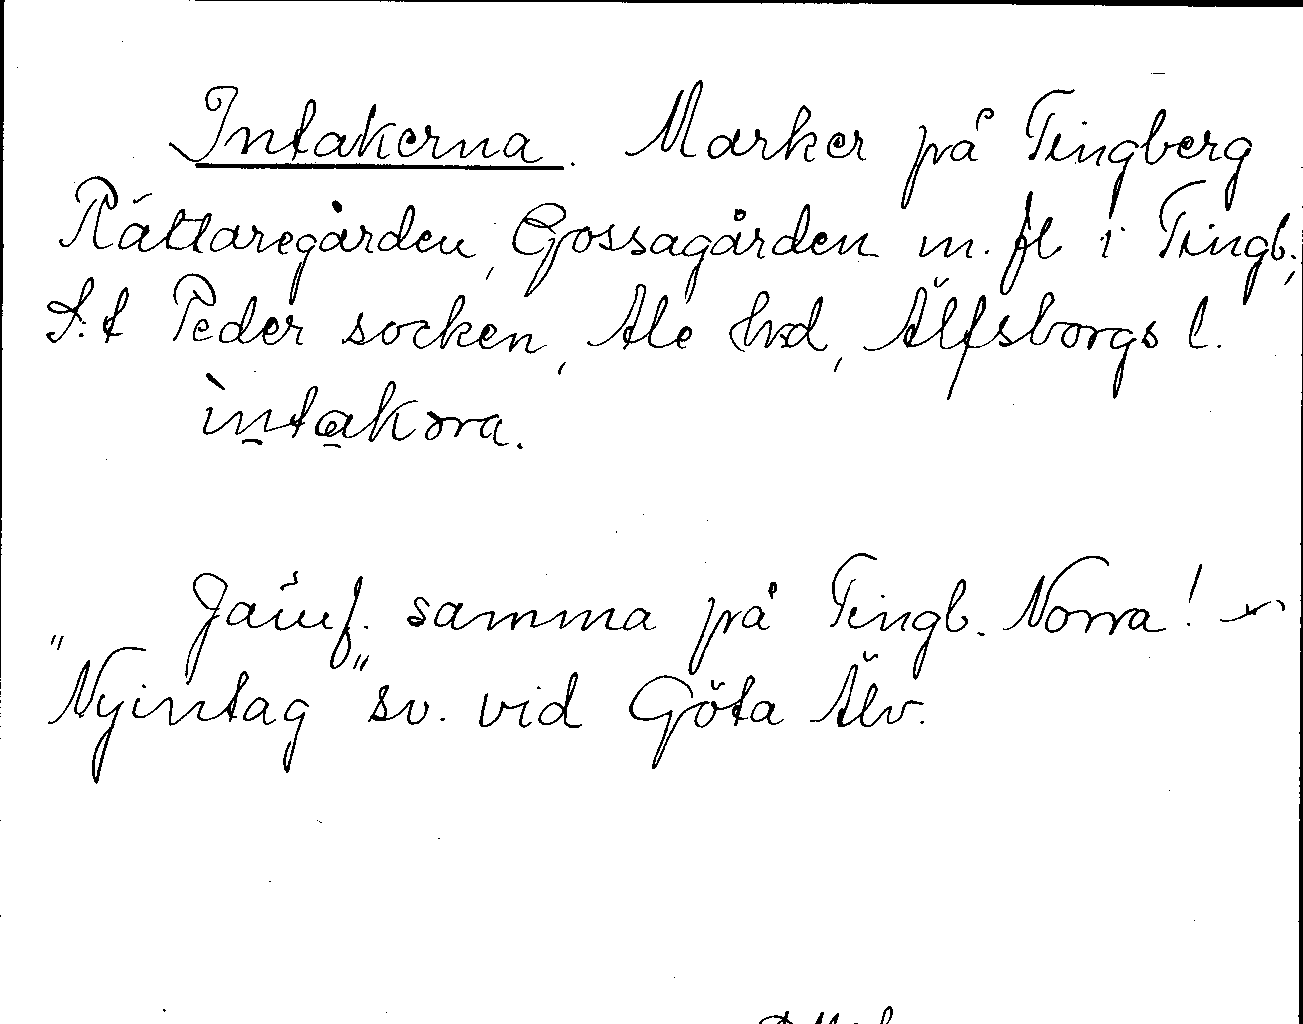 Intakerna. Marker på Tingberg
Rättaregården, Gossagården m. fl i Tingb.,
S:t Peder socken, Ale hd, Älfsborgs l.
ìntakɔra.
Jämf. samma på Tingb. Norra!
"Nyintag" sv. vid Göta Älv.